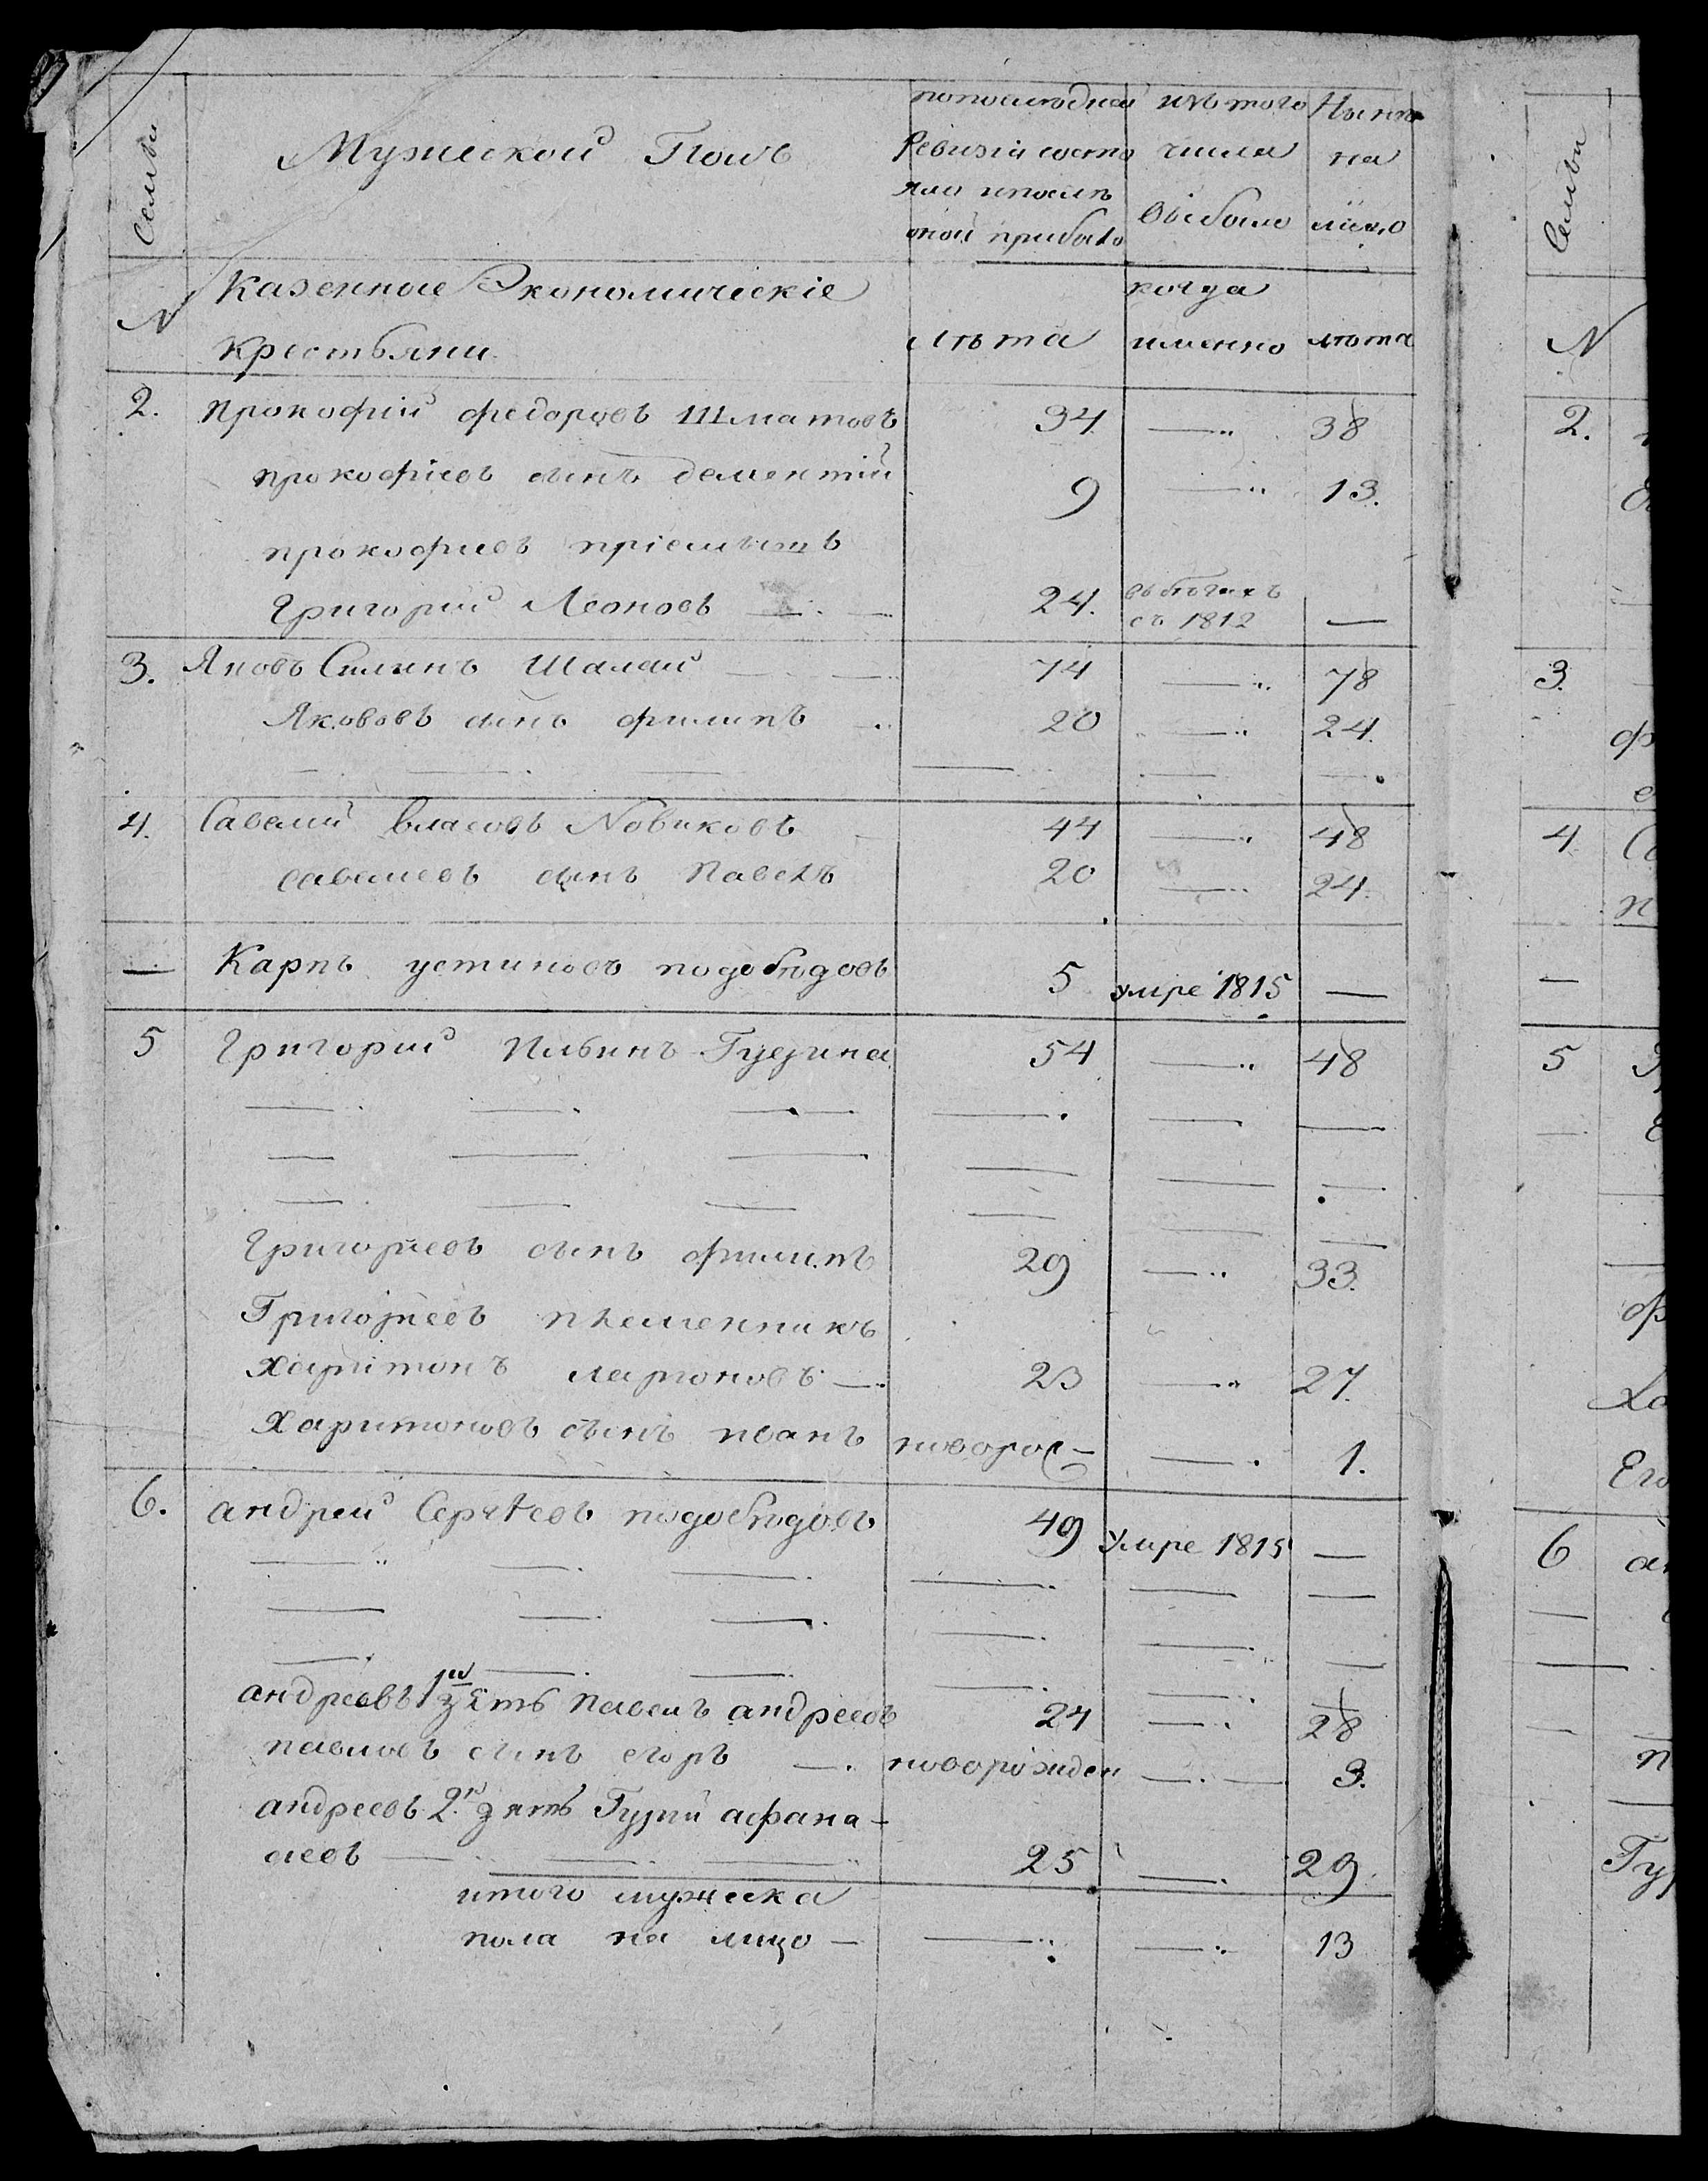 Семьи Мужеской Полъ попоследней изъ того Ныне
Ревизiи состо числа на
яло ипослѣ выбыло лицо
оной прибыло
Казенные Экономическiе когда
№ крестьяни лѣта именно лѣта
2. прокофiй федоровъ Шматовъ 34 — 38
прокофiевъ сынъ дементiй 9 — 13.
прокофиевъ прiемышъ
Григорий Леоновъ — 24. въ бѣгахъ съ 1812 —
3. Яковъ Силинъ Шалай — 74 — 78
Яковозъ сынъ филипъ — 20 — 24.
— — — — — —
4. Савелий власовъ Новиковъ 44 — 48
савелиевъ сынъ павелъ 20 — 24.
— Карпъ устиновъ подобѣдовъ 5 умре 1815 —
5 Григорий Ильинъ Гузина 54 — 48
— — — — — —
— — — — — —
— — — — — —
Григориевъ сынъ филипъ 29 — 33.
Григориевъ племенникъ
харитонъ ларионовъ — 23 — 27.
Харитоновъ сынъ иванъ новорож — 1.
6. андрей Сергеевъ подобѣдовъ 49 Умре 1815 —
— — — — — —
— — — — — —
— — — — — —
андреевъ 1й зять павелъ андреевъ 24 — 28
павловъ сынъ егоръ — новорожден — 3.
андреевъ 2й зять Гурий афана-
сиевъ — 25 — 29.
итого мужеска
пола на лицо — — — 13
Семьи
№
2.
3.
4
—
5
6